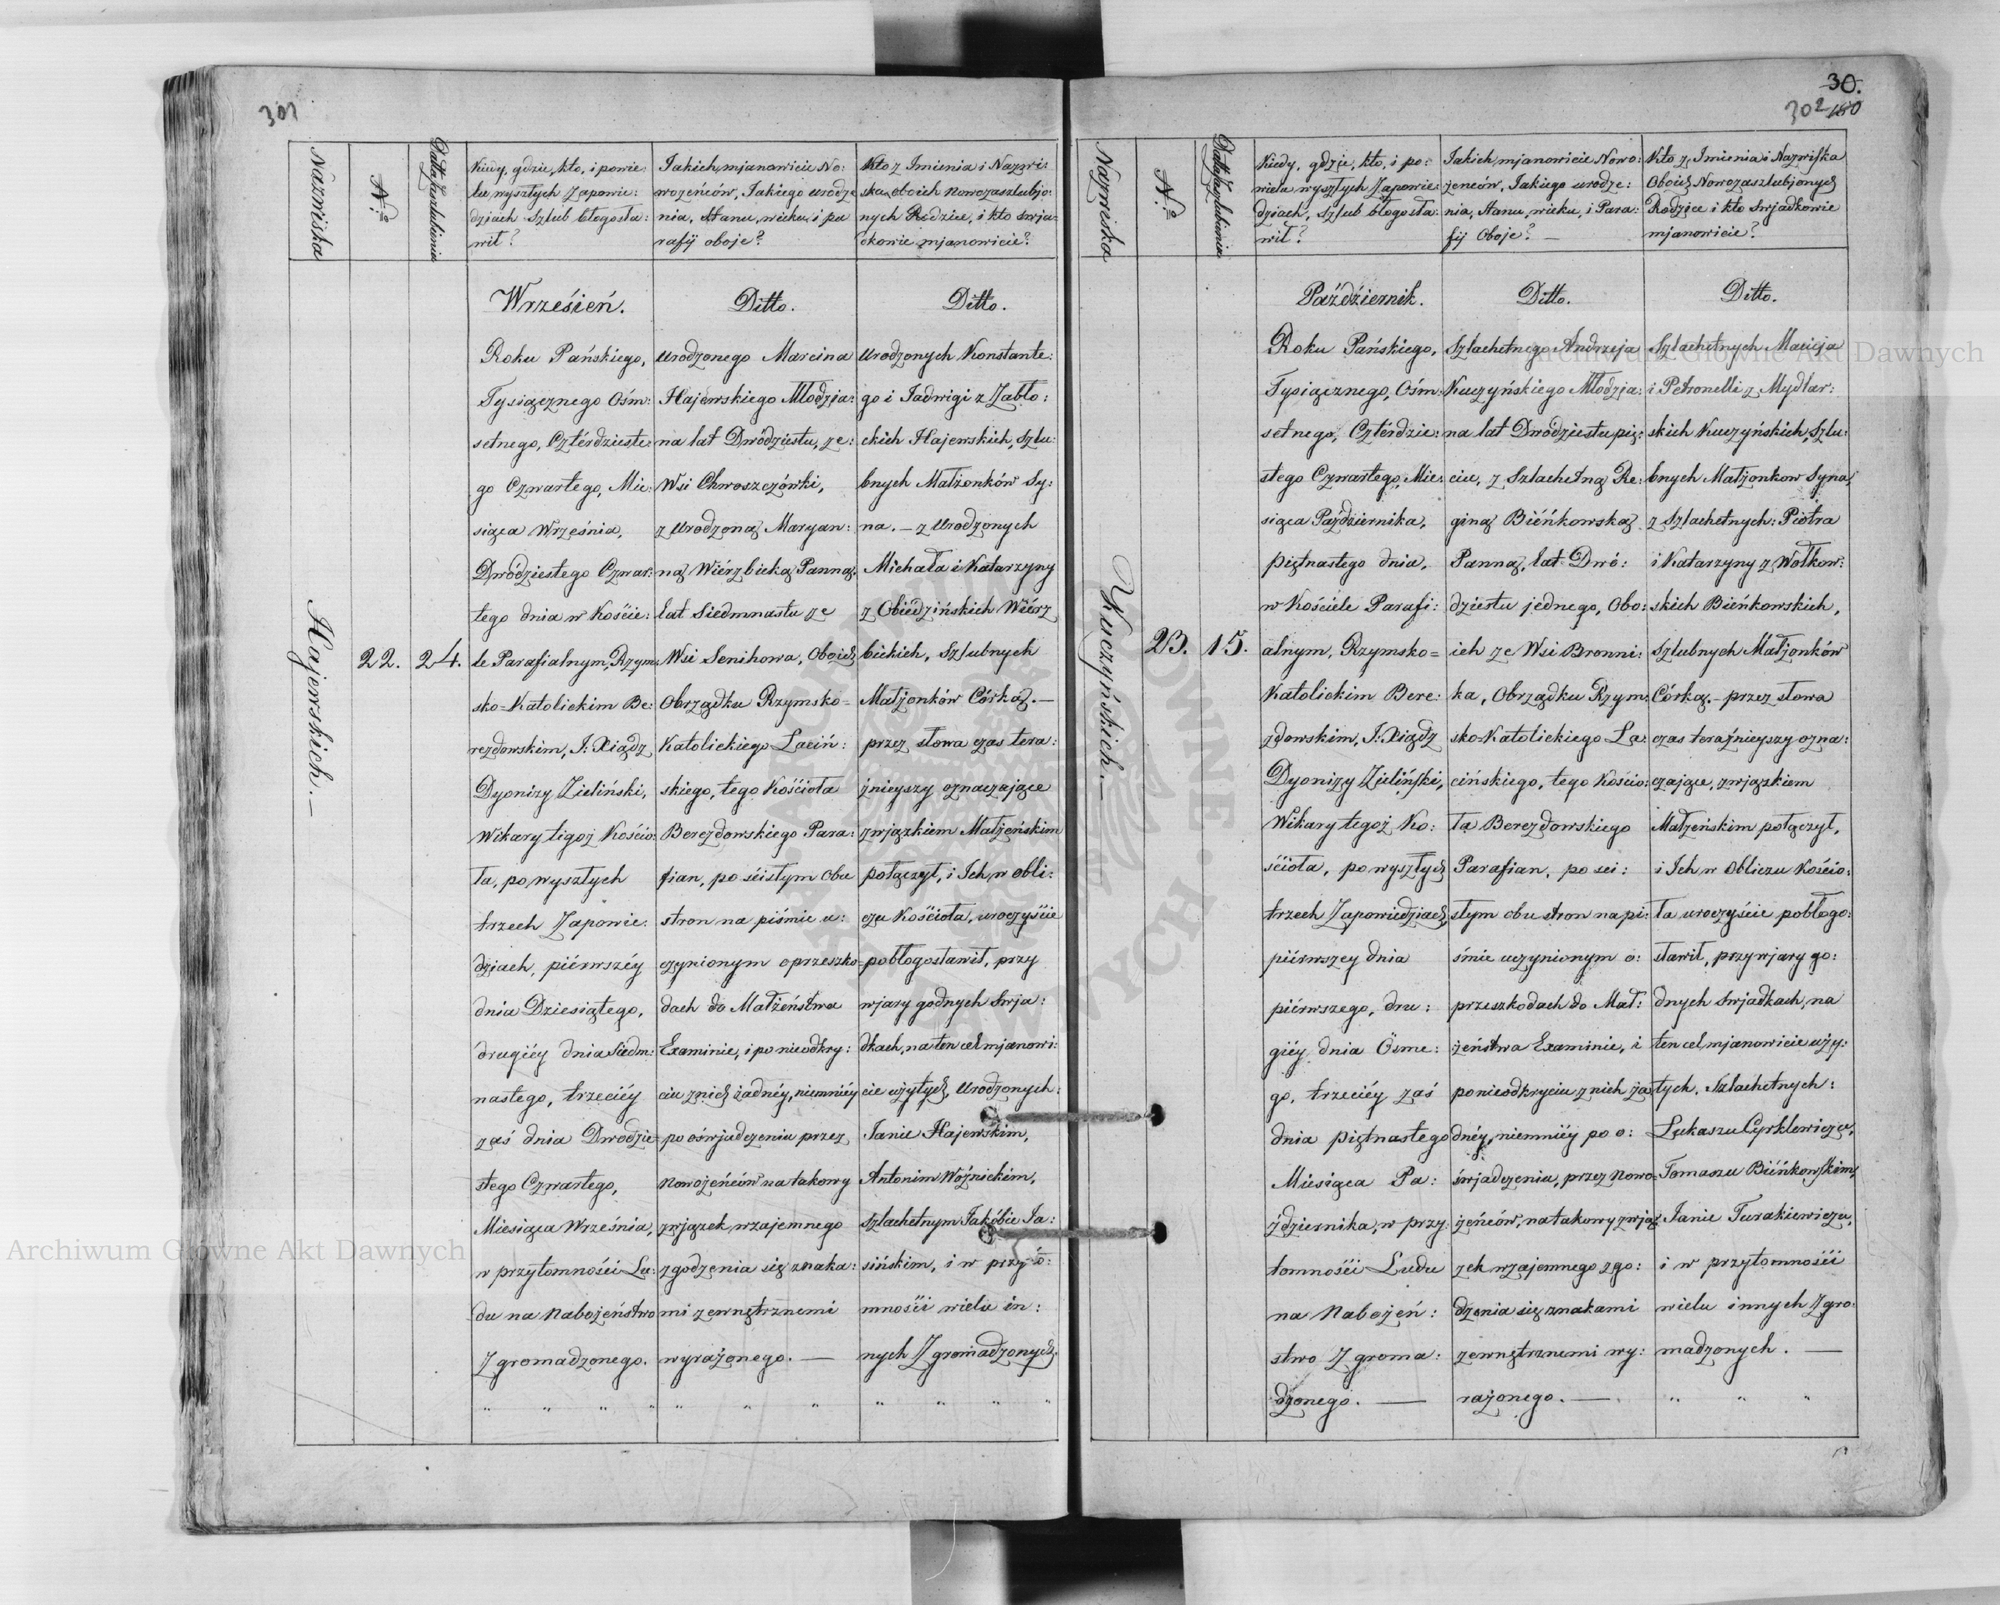 301
Nazwiska
N.o
Data Zaślubienia
Kiedy, gdzie, kto, i powie:
lu wyszłych Zapowie:
dziach Szlub błogosła:
wił?
Jakich, mjanowicie No:
wożeńców, Jakiego urodze
nia, Stanu, wieku, i pa
rafij oboje?
Kto z Imienia i Nazwi:
ska, oboich nowozaszlubjo:
nych Rodzice, i kto swja:
dkowie mjanowicie?
Hajewskich.—
22.
24.
Wrześień.
Roku Pańskiego,
Tysiącznego Ośm:
setnego, Cztérdzieste:
go Czwartego, Mie:
siąca Września,
Dwódziestego Czwar:
tego dnia w Koście:
le Parafialnym, Rzym:
sko=Katolickim Be:
rezdowskim, J: Xiądz
Dyonizy Zieliński,
Wikary tegoż Kościo:
ła, po wyszłych
trzech Zapowie:
dziach, piérwszéy
dnia Dziesiątego,
drugiéy dnia Siedm:
nastego, trzeciéy
zaś dnia Dwódzie
stego Czwartego,
Miesiąca Września,
w przytomności Lu:
du na Nabożeństwo
Zgromadzonego.
Ditto.
Urodzonego Marcina
Hajewskiego Młodzia:
na lat Dwódziestu, ze:
Wsi Chwoszczówki,
z Urodzoną Maryan:
ną Wiérzbicką Panną,
lat Siedmnastu ze
Wsi Senihowa, Oboich
Obrządku Rzymsko=
Katolickiego Laciń:
skiego, tego Kościoła
Berezdowskiego Para:
fian, po ścisłym obu
stron na piśmie u:
czynionym o przeszko=
dach do Małżeństwa
Examinie, i po nieodkry:
ciu z nich żadnéy, niemniéy
po oświadczeniu przez
Nowożeńców na takowy
związek wzajemnego
zgodzenia się znaka:
mi zewnętrznemi
wyrażonego. —
Ditto.
Urodzonych Konstante:
go i Jadwigi z Zabło:
ckich Hajewskich, Szlu:
bnych Małżonków Sy:
na. — z Urodzonych
Michała i Katarzyny
z Obiedzińskich Wiérz
bickich, Szlubnych
Małżonków Córką. —
przez słowa czas tera:
źnieyszy oznaczające
związkiem Małżeńskim
połączył, i Ich w obli:
czu Kościoła, uroczyście
pobłogosławił, przy
wjary godnych Swja:
dkach, na ten cel mjanowi:
cie użytych, Urodzonych:
Janie Hajewskim,
Antonim Woźnickim,
Szlachetnym Jakóbie Ja:
sińskim, i w przyto:
mności wielu in:
nych Zgromadzonych.
30.
302 180
Nazwiska
N.o
Data Zaślubienia
Kiedy, gdzie, kto, i po:
wielu wyszłych Zapowie:
dziach, Szlub błogosła:
wił?
Jakich, mjanowicie Nowo
żeńców, Jakiego urodze:
nia, Stanu, wieku, i Para:
fij Oboje? —
Kto z Imienia i Nazwiska
Oboich Nowozaszlubjonych
Rodzice i kto Swjadkowie
mjanowicie?
Kuczyńskich.—
23.
15.
Październik.
Roku Pańskiego,
Tysiącznego, Ośm:
setnego, Cztérdzie:
stego Czwartego, Mie:
siąca Października,
piętnastego dnia,
w Kościele Parafi:
alnym, Rzymsko=
Katolickim Bere:
zdowskim, J: Xiądz
Dyonizy Zieliński,
Wikary tegoż Ko:
ścioła, po wyszłych
trzech Zapowiedziach,
piérwszey dnia
piérwszego, dru:
giéy dnia Ósme:
go, trzeciéy zaś
dnia piętnastego
Miesiąca Pa:
ździernika, w przy:
tomności Ludu
na Nabożeń:
stwo Zgroma:
dzonego. —
Ditto.
Szlachetnego Andrzeja
Kuczyńskiego Młodzia:
na lat Dwódziestu pię:
ciu, z Szlachetną Re:
giną Bieńkowską
Panną, lat Dwó:
dziestu jednego, Obo:
ich ze Wsi Bronni:
ka, Obrządku Rzym:
sko=Katolickiego La:
cińskiego, tego Kościo:
ła Berezdowskiego
Parafian, po sci:
słym obu stron na pi:
śmie uczynionym o:
przeszkodach do Mał:
żeństwa Examinie, i
ponieodkryciu z nich ża
dnéy, niemniéy po o:
świadczeniu, przez Nowo:
żeńców, na takowy związ
zek wzajemnego zgo:
dzenia się znakami
zewnętrznemi wy:
rażonego. —
Ditto.
Szlachetnych Macieja
i Petronelli z Mydlar:
skich Kuczyńskich, Szlu:
bnych Małżonkow Syna,
z Szlachetnych: Piotra
i Katarzyny z Wołkow:
skich Bieńkowskich,
Szlubnych Małżonków
Córką. — przez słowa
czas teraźnieyszy ozna:
czające, związkiem
Małżeńskim połączył,
i Ich w Obliczu Kościo:
ła uroczyście pobłogo:
sławił, przy wjary go:
dnych Swjadkach, na
ten cel mjanowicie uży:
tych, Szlachetnych:
Łukaszu Cyrklewiczu,
Tomaszu Bieńkowskim,
Janie Turakiewiczu,
i w przytomności
wielu innych Zgro:
madzonych. —
Archiwum Główne Akt Dawnych
Archiwum Główne Akt Dawnych